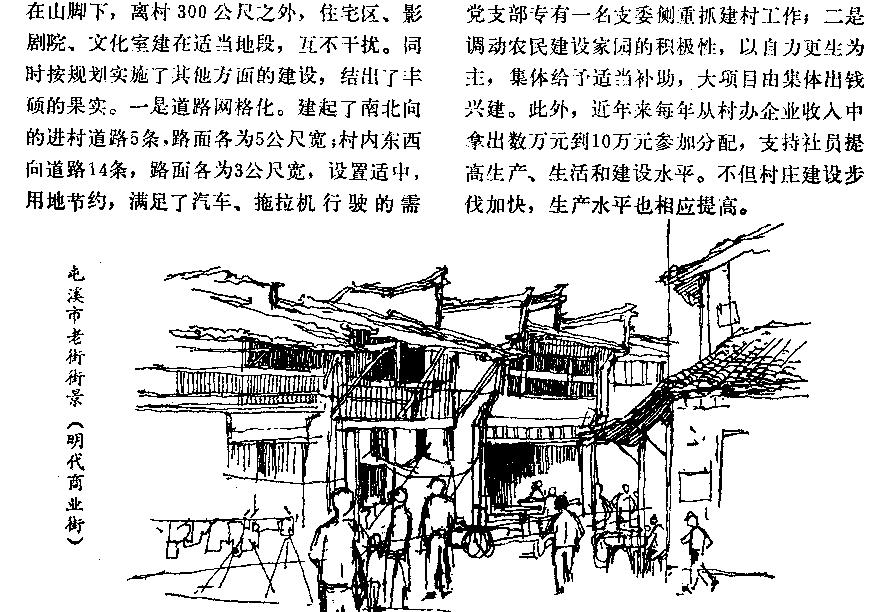 在山脚下，离村300公尺之外，住宅区、影
剧院、文化室建在适当地段，互不干扰。同
时按规划实施了其他方面的建设，结出了丰
硕的果实。一是道路网格化。建起了南北向
的进村道路5条，路面各为5公尺宽；村内东西
向道路14条，路面各为3公尺宽，设置适中，
用地节约，满足了汽车、拖拉机行驶的需
党支部专有一名支委侧重抓建村工作；二是
调动农民建设家园的积极性，以自力更生为
主，集体给予适当补助，大项目由集体出钱
兴建。此外，近年来每年从村办企业收入中
拿出数万元到10万元参加分配，支持社员提
高生产、生活和建设水平。不但村庄建设步
伐加快，生产水平也相应提高。
屯溪市老街街景（明代商业街）